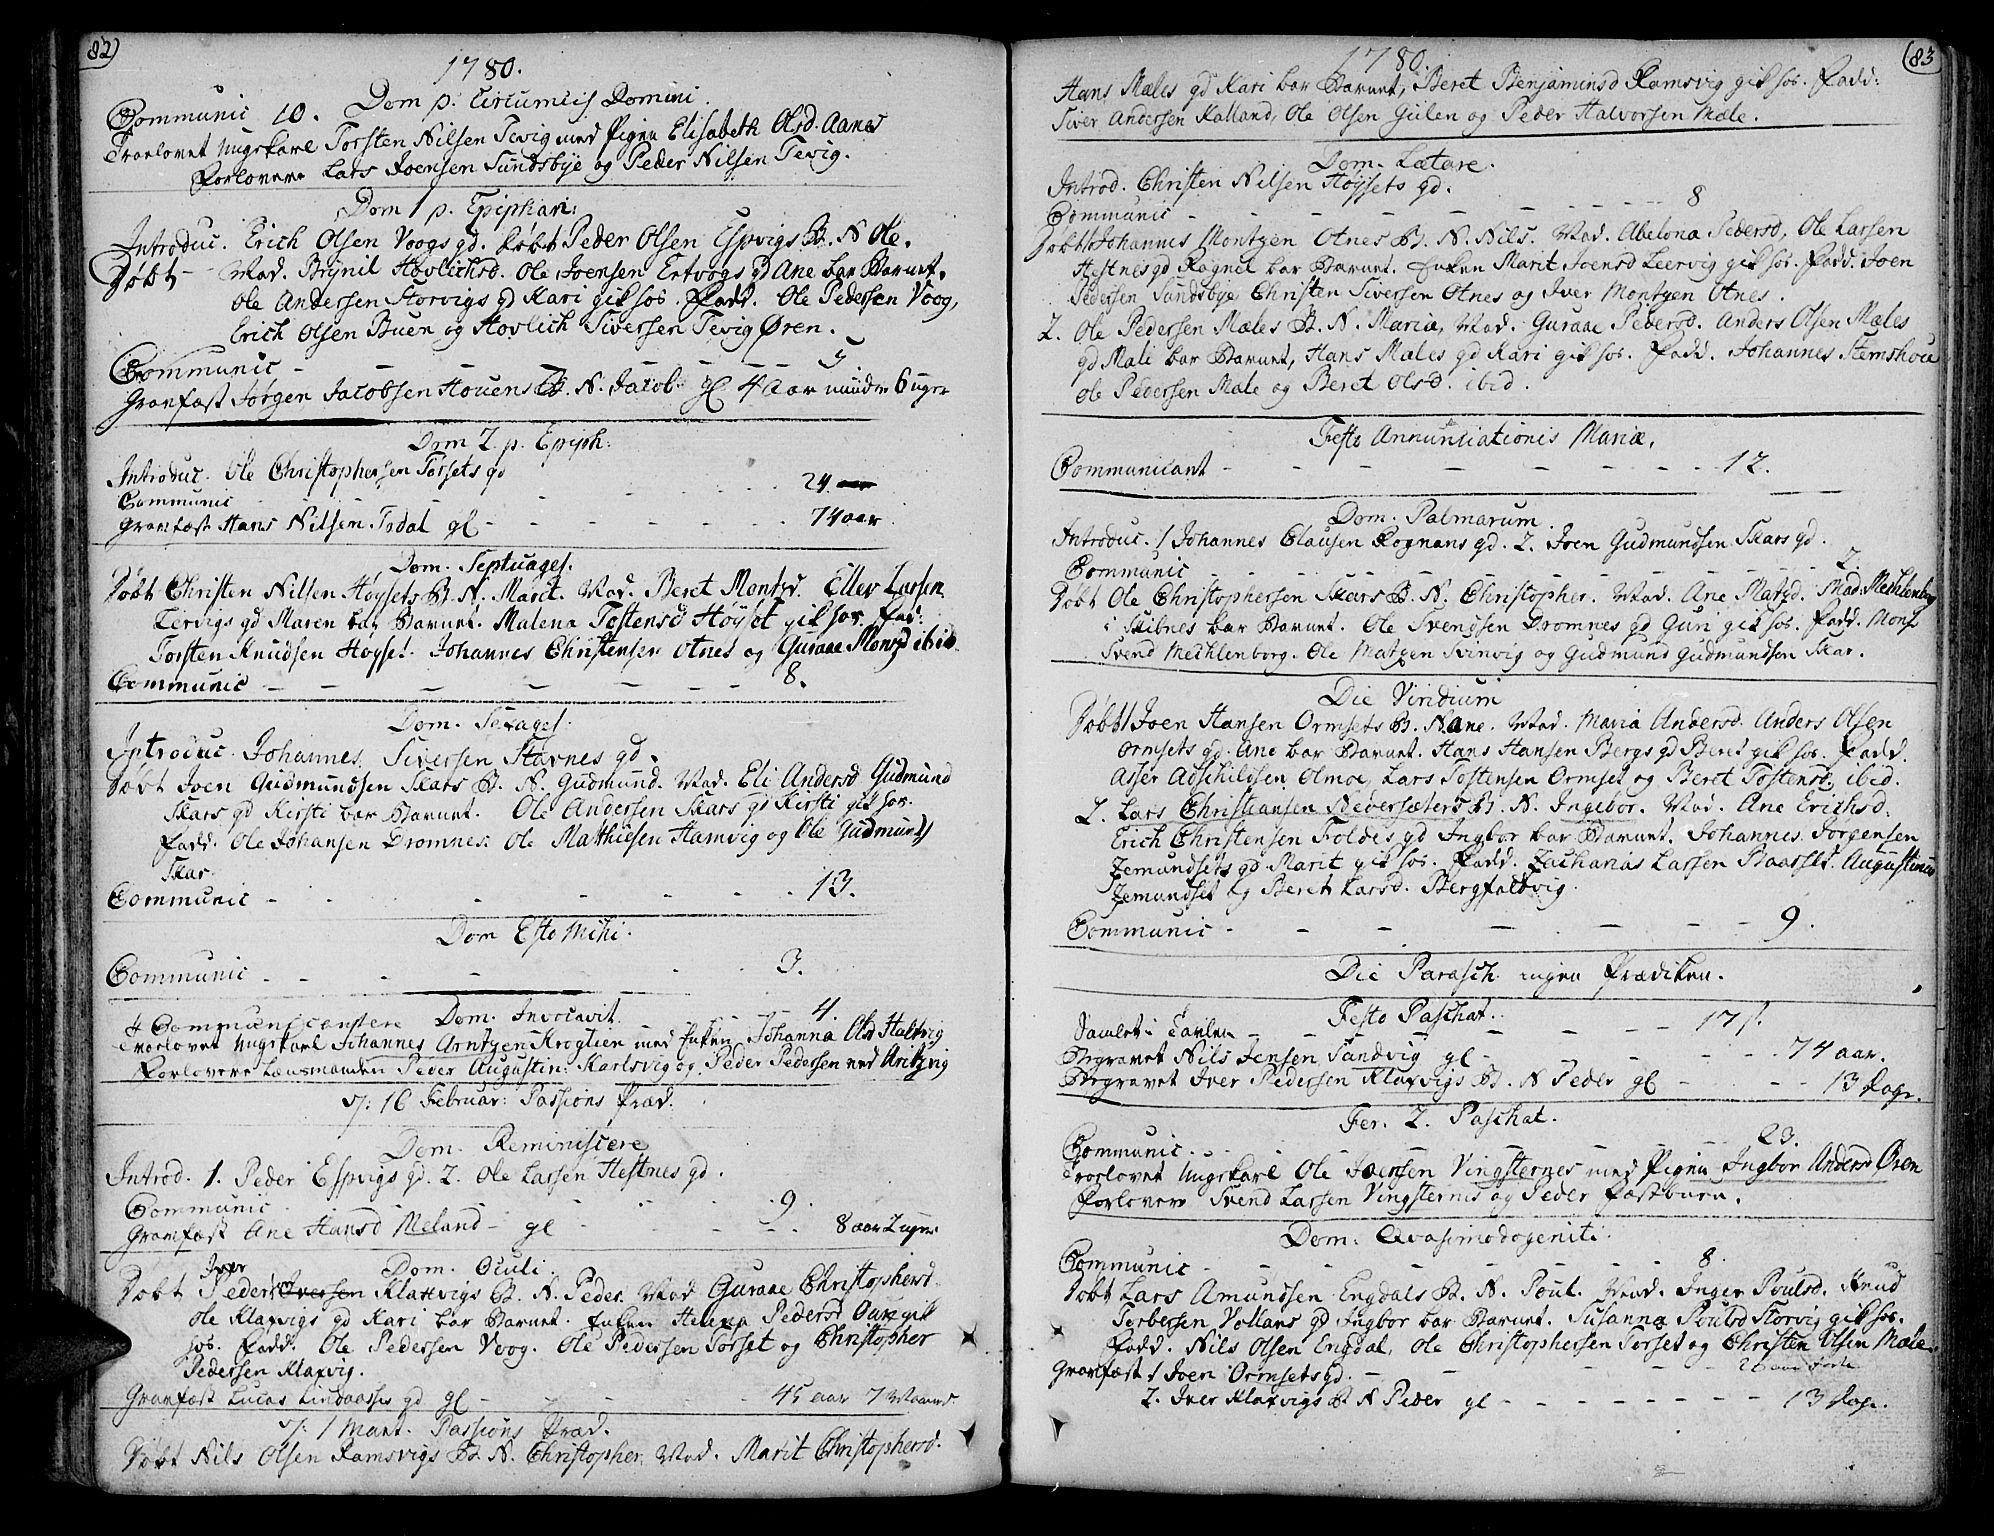 82)
1780.
Dom p. Circumcis Domini.
Communic 10.
Troelovet Ungkarl Torsten Nilsen Tevig med Pigen Elisabeth Olsd. Aanes
Forlovere Lars Joensen Sundsbye og Peder Nilsen Tevig.
Dom 1 p. Epiphan:
Introduc. Erich Olsen Voogs gd. Døbt Peder Olsen Espvigs B. N Ole.
Døbt - Mod. Brynil Hovlichsd. Ole Joensen Ertvogs gd Ane bar Barnet.
Ole Andersen Storvigs gd Kari gik hos. Fadd. Ole Pedersen Voog,
Erich Olsen Buen og Hovlich Siversen Tevig Øren.
Communic - - - - - - 5
Gravfæst Jørgen Jacobsen Houens B. N. Jacob gl 4 Aar mindre 6 uger
Dom 2. p. Epiph:
Introduc. Ole Christophersen Torsets gd
Communic - - - - 24
Gravfæst Hans Nilsen Todal gl - - - - 74 aar
Dom. Septuages.
Døbt Christen Nilsen Høysets B. N. Marit. Mod. Beret Montsd. Ellev Larsen
Lervigs gd Maren bar Barnet. Malena Tostensd Høyset gik hos. Fad:
Torsten Knudsen Høyset. Johannes Christensen Otnes og Guraae Montsd ibid.
Communic - - - - - - 8.
Dom. Sexages.
Introduc. Johannes Siversen Stavnes gd.
Døbt Joen Gudmundsen Skars B. N. Gudmund. Mod. Eli Andersd Gudmund
Skars gd Kirsti bar Barnet. Ole Andersen Skars gd Kirsti gik hos.
Fadd. Ole Johansen Dromnes. Ole Matthiesen Hamvig og Ole Gudmunds
Skar.
Communic - - - - - - 13.
Dom Esto Mihi.
Communic - - - - 3.
Dom. Invocavit.
4 Communicantere - - - 4.
Troelovet Ungkarl Johannes Arntzen Krogtien med Enken Johanna Olsd Halsvig
Forlovere Lensmanden Peder Augustin: Karlsvig og Peder Pedersen ved
d. 16 Februar: Passions Præd.
Dom. Reminiscere
Introd. 1. Peder Espvigs gd. 2. Ole Larsen Hestnes gd.
Communic - - - - 9.
Gravfæst Ane Hansd Meland - gl - - - 8 aar 2 uger
Dom. Oculi.
Iver
Døbt Pedersen Iversen Klaxvigs B. N. Peder. Mod Guraae Christophersd.
Ole Klaxvigs gd Kari bar Barnet. Enken Helena Pedersd Oure gik
hos. Fadd. Ole Pedersen Voog. Ole Pedersen Torset og Christopher
Pedersen Klaxvig.
Gravfæst Lucas Lindaases gd gl - - - 45 aar 7 Maaned.
d. 1 Mart. Passions Præd.
Døbt Nils Olsen Ramsvigs B. N. Christopher. Mod. Marit Christophersd.
(83
1780.
Hans Mæles gd Kari bar Barnet, Beret Benjaminsd Ramsvig gik hos. Fadd:
Siver Andersen Kalland, Ole Olsen Giilen og Peder Halvorsen Mæle.
Dom. Lætare.
Introd. Christen Nilsen Høysets gd.
Communic - - - - - - 8
Døbt 1 Johannes Montzen Otnes B. N. Nils. Mod. Abelona Pedersd. Ole Larsen
Hestnes gd Ragnel bar Barnet. Enken Marit Joensd Leervig gik hos. Fadd. Joen
Pedersen Sundsbye Christen Siversen Otnes og Iver Montzen Otnes.
2. Ole Pedersen Mæles B. N. Maria, Mod. Guraae Pedersd. Anders Olsen Mæles
gd Mali bar Barnet, Hans Mæles gd Kari gik hos. Fadd. Johannes Stemshoue
Ole Pedersen Mæle og Beret Olsd. ibid.
Festo Annuntiationis Mariæ,
Communicant - - - - - - 12.
Dom. Palmarum.
Introduc. 1 Johannes Clausen Rognans gd. 2. Joen Gudmundsen Skars gd.
Communic - - - - - - 2.
Døbt Ole Christophersen Skars B. N. Christopher. Mod. Ane Matzd. Mad: Mechlenborg
i Skibnes bar Barnet. Ole Svendsen Dromnes gd Guri gik hos. Fadd. Mons
Svend Mechlenborg. Ole Matzen Svinvig og Gudmund Gudmundsen Skar.
Die Viridium
Døbt 1 Joen Hansen Ormsets B. N. Ane. Mod. Maria Andersd. Anders Olsen
Ormsets gd. Ane bar Barnet. Hans Hansen Bergs gd Beret gik hos. Fadd.
Asser Adschildsen Olmoe, Lars Tostensen Ormset og Beret Tostensd. ibid.
2. Lars Christiansen Nedersæters B. N. Ingebor. Mod. Ane Erichsd.
Erich Christensen Foldes gd Ingbor bar Barnet. Johannes Jorgensen
Zemundsets gd Marit gik hos. Fadd. Zacharias Larsen Baarset. Augustinus
Zemundset og Beret Larsd. Bergfaldvig.
Communic - - - - - - 9.
Die Parasch. ingen Prædiken.
Festo Paschat.
Samlet i Tavlen - - - - 17 s.
Begravet Nils Jensen Sandvig gl - - - - 74 aar.
Begravet Iver Pedersen Klaxvigs B. N Peder gl - - - 13 Dage.
Fer. 2. Paschat.
Communic - - - - 23.
Troelovet Ungkarl Ole Joensen Vingsternes med Pigen Ingbor Andersd Øren
Forlovere Svend Larsen Vingsternes og Peder Fæstbuen.
Dom. Qvasimodogeniti.
Communic - - - - - - 8.
Døbt Lars Amundsen Engdals B. N. Poul. Mod. Inger Poulsd. Knud
Torbersen Vollans gd Ingbor bar Barnet. Susanna Poulsd Storvig gik hos.
Fadd. Nils Olsen Engdal, Ole Christophersen Torset og Christen Olsen Mæle.
Gravfæst 1 Joen Ormsets gd. - - - - -
2. Iver Klaxvigs B. N Peder gl - - - - - - 13 Dage.